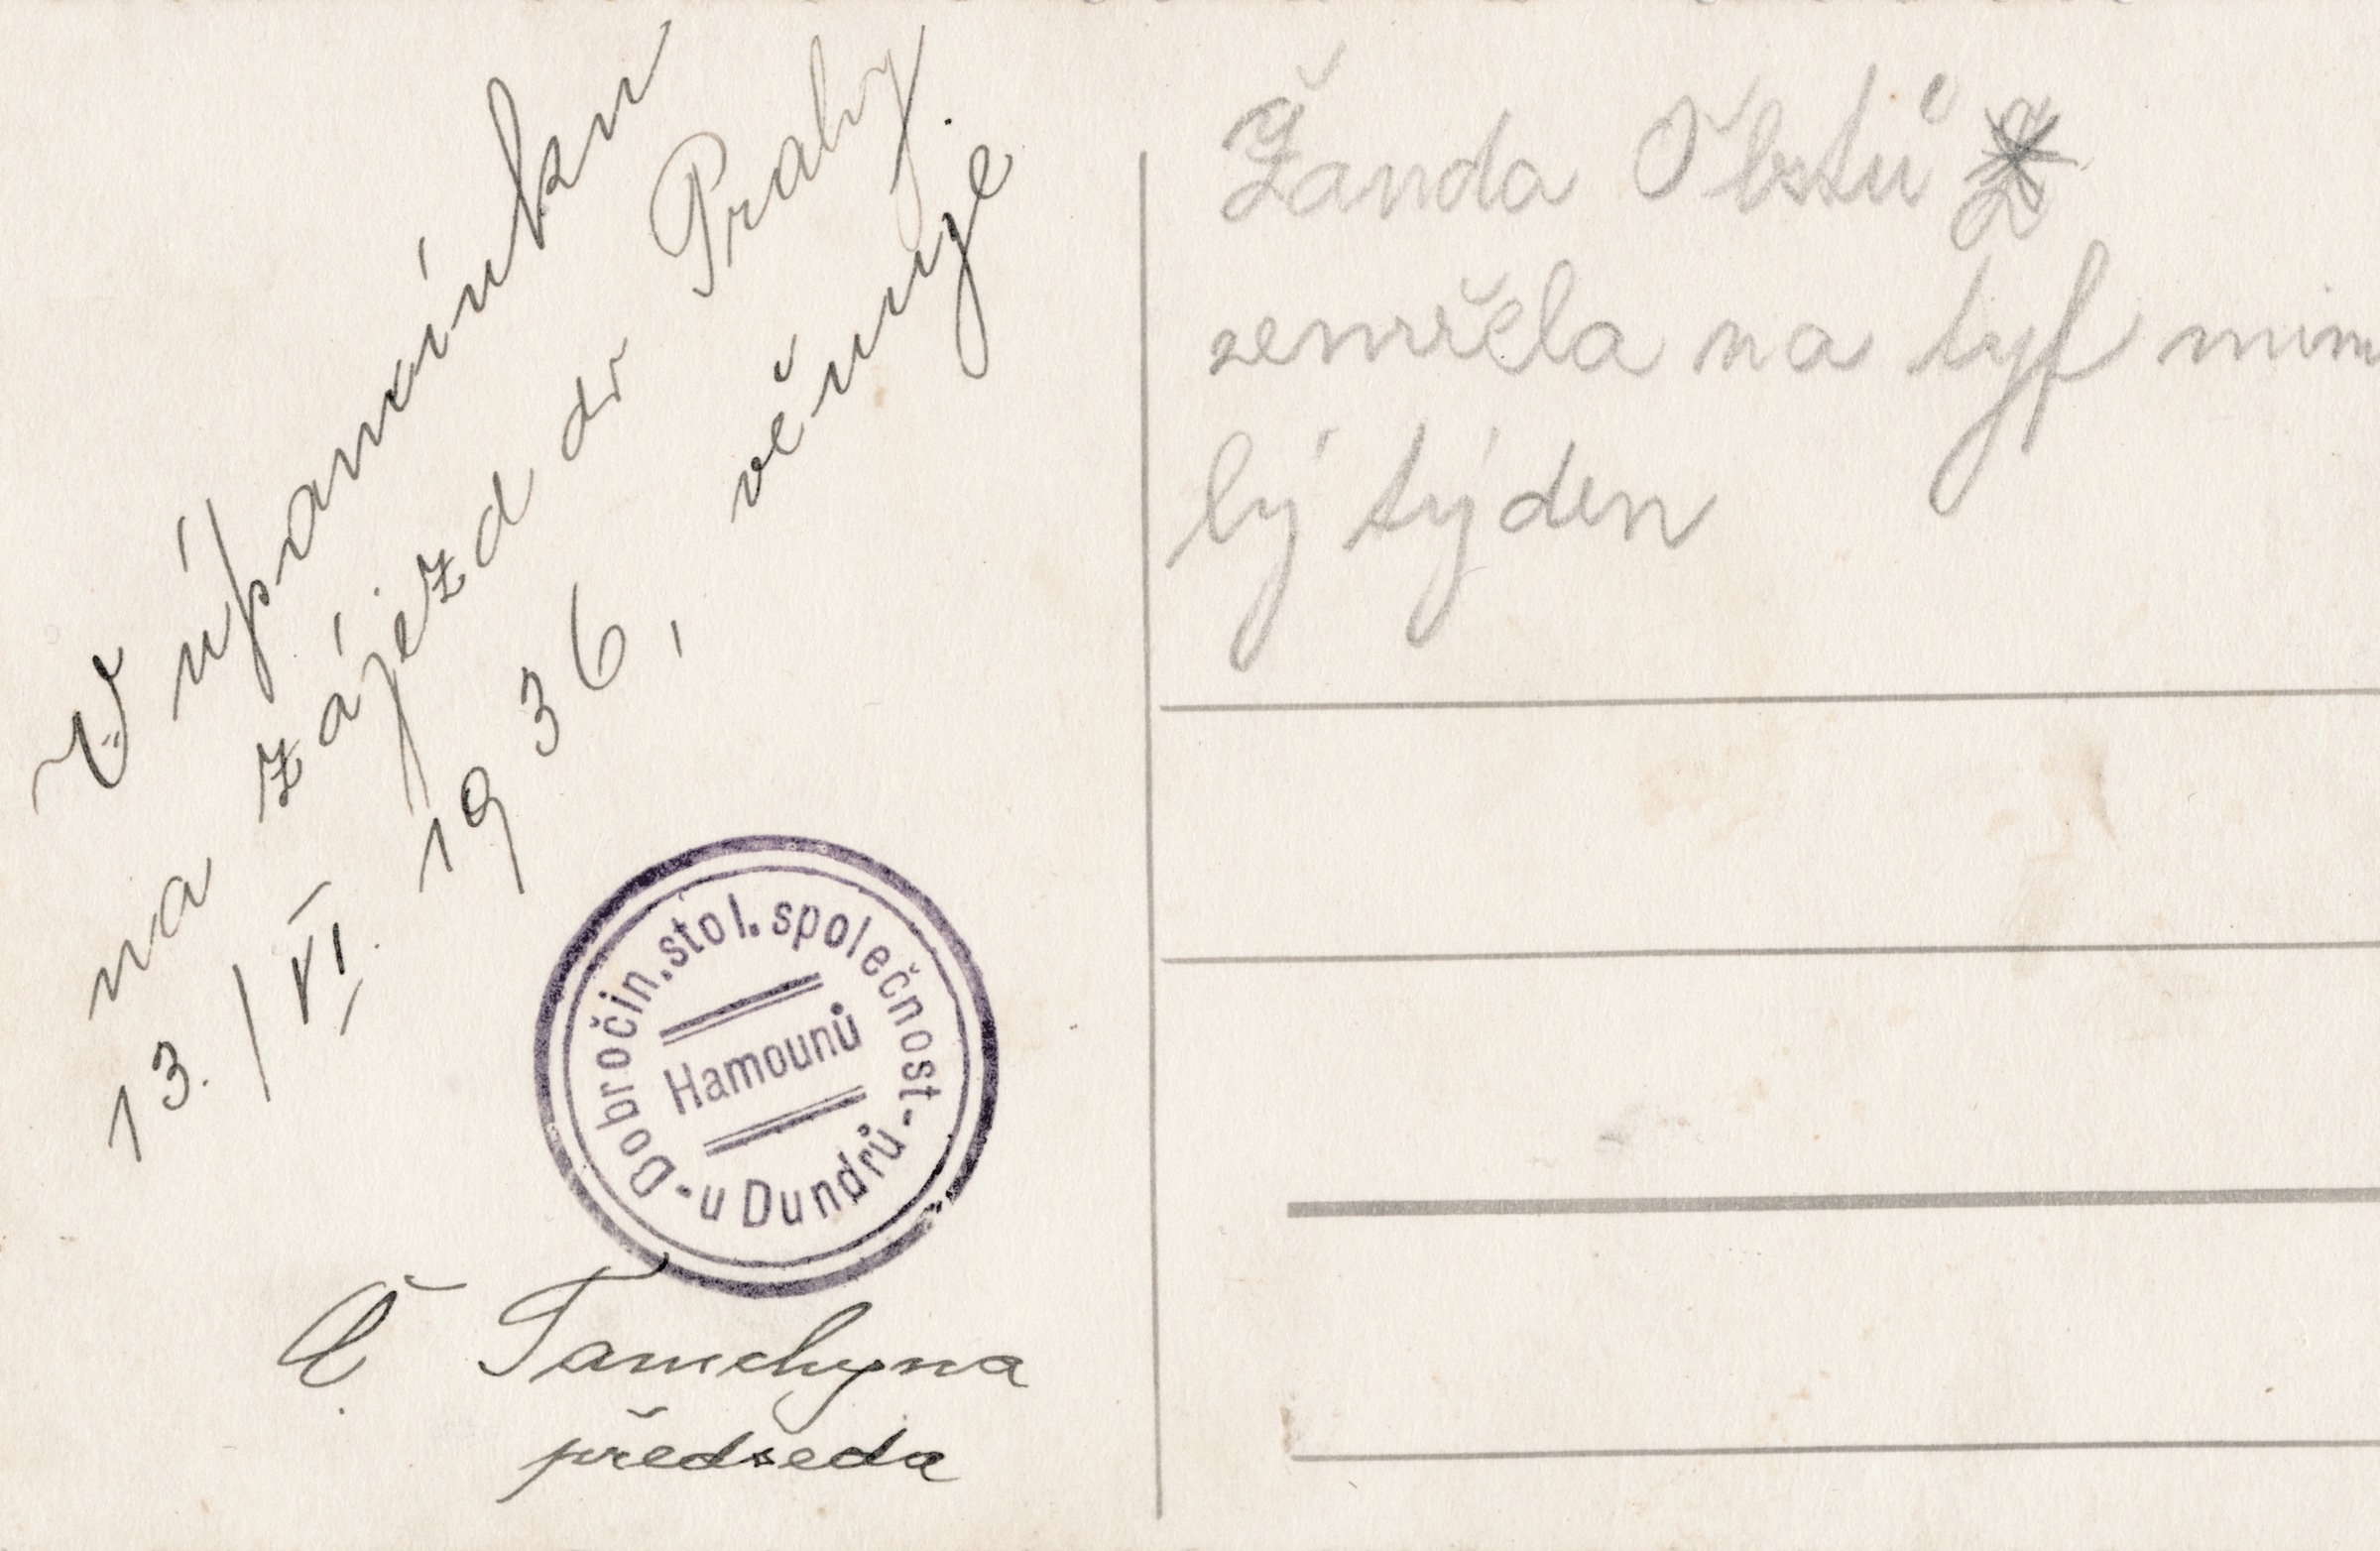 V úpomínku
na zájezd do Prahy
13./VI. 1936, věnuje
Dobročin. stol. společnost
Hamounů
u Dundrů
Tamchyna
předseda
Žanda
zemřela na tyf minu
lý týden